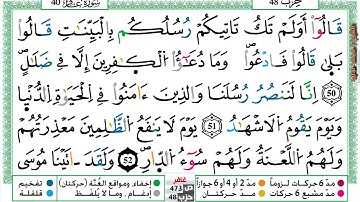 قَالُوٓا۟ أَوَلَمْ تَكُ تَأْتِيكُمْ رُسُلُكُم بِٱلْبَيِّنَـٰتِ قَالُوا۟
بَلَىٰ قَالُوا۟ فَٱدْعُوا۟ وَمَا دُعَـٰٓؤُا۟ ٱلْكَـٰفِرِينَ إِلَّا فِى ضَلَـٰلٍ
50 إِنَّا لَنَنصُرُ رُسُلَنَا وَٱلَّذِينَ ءَامَنُوا۟ فِى ٱلْحَيَوٰةِ ٱلدُّنْيَا
وَيَوْمَ يَقُومُ ٱلْأَشْهَـٰدُ 51 يَوْمَ لَا يَنفَعُ ٱلظَّـٰلِمِينَ مَعْذِرَتُهُمْ
وَلَهُمُ ٱللَّعْنَةُ وَلَهُمْ سُوٓءُ ٱلدَّارِ 52 وَلَقَدْ ءَاتَيْنَا مُوسَى
مدّ 6 حركات لزوماً مدّ 2 أو 4 أو 6 جوازاً غافر إخفاء، ومواقع الغُنَّة (حركتان) تفخيم
مدّ مشبع 6 حركات مدّ حركتان ص 473 حزب 48 إدغام، وما لا يُلفَظ قلقلة